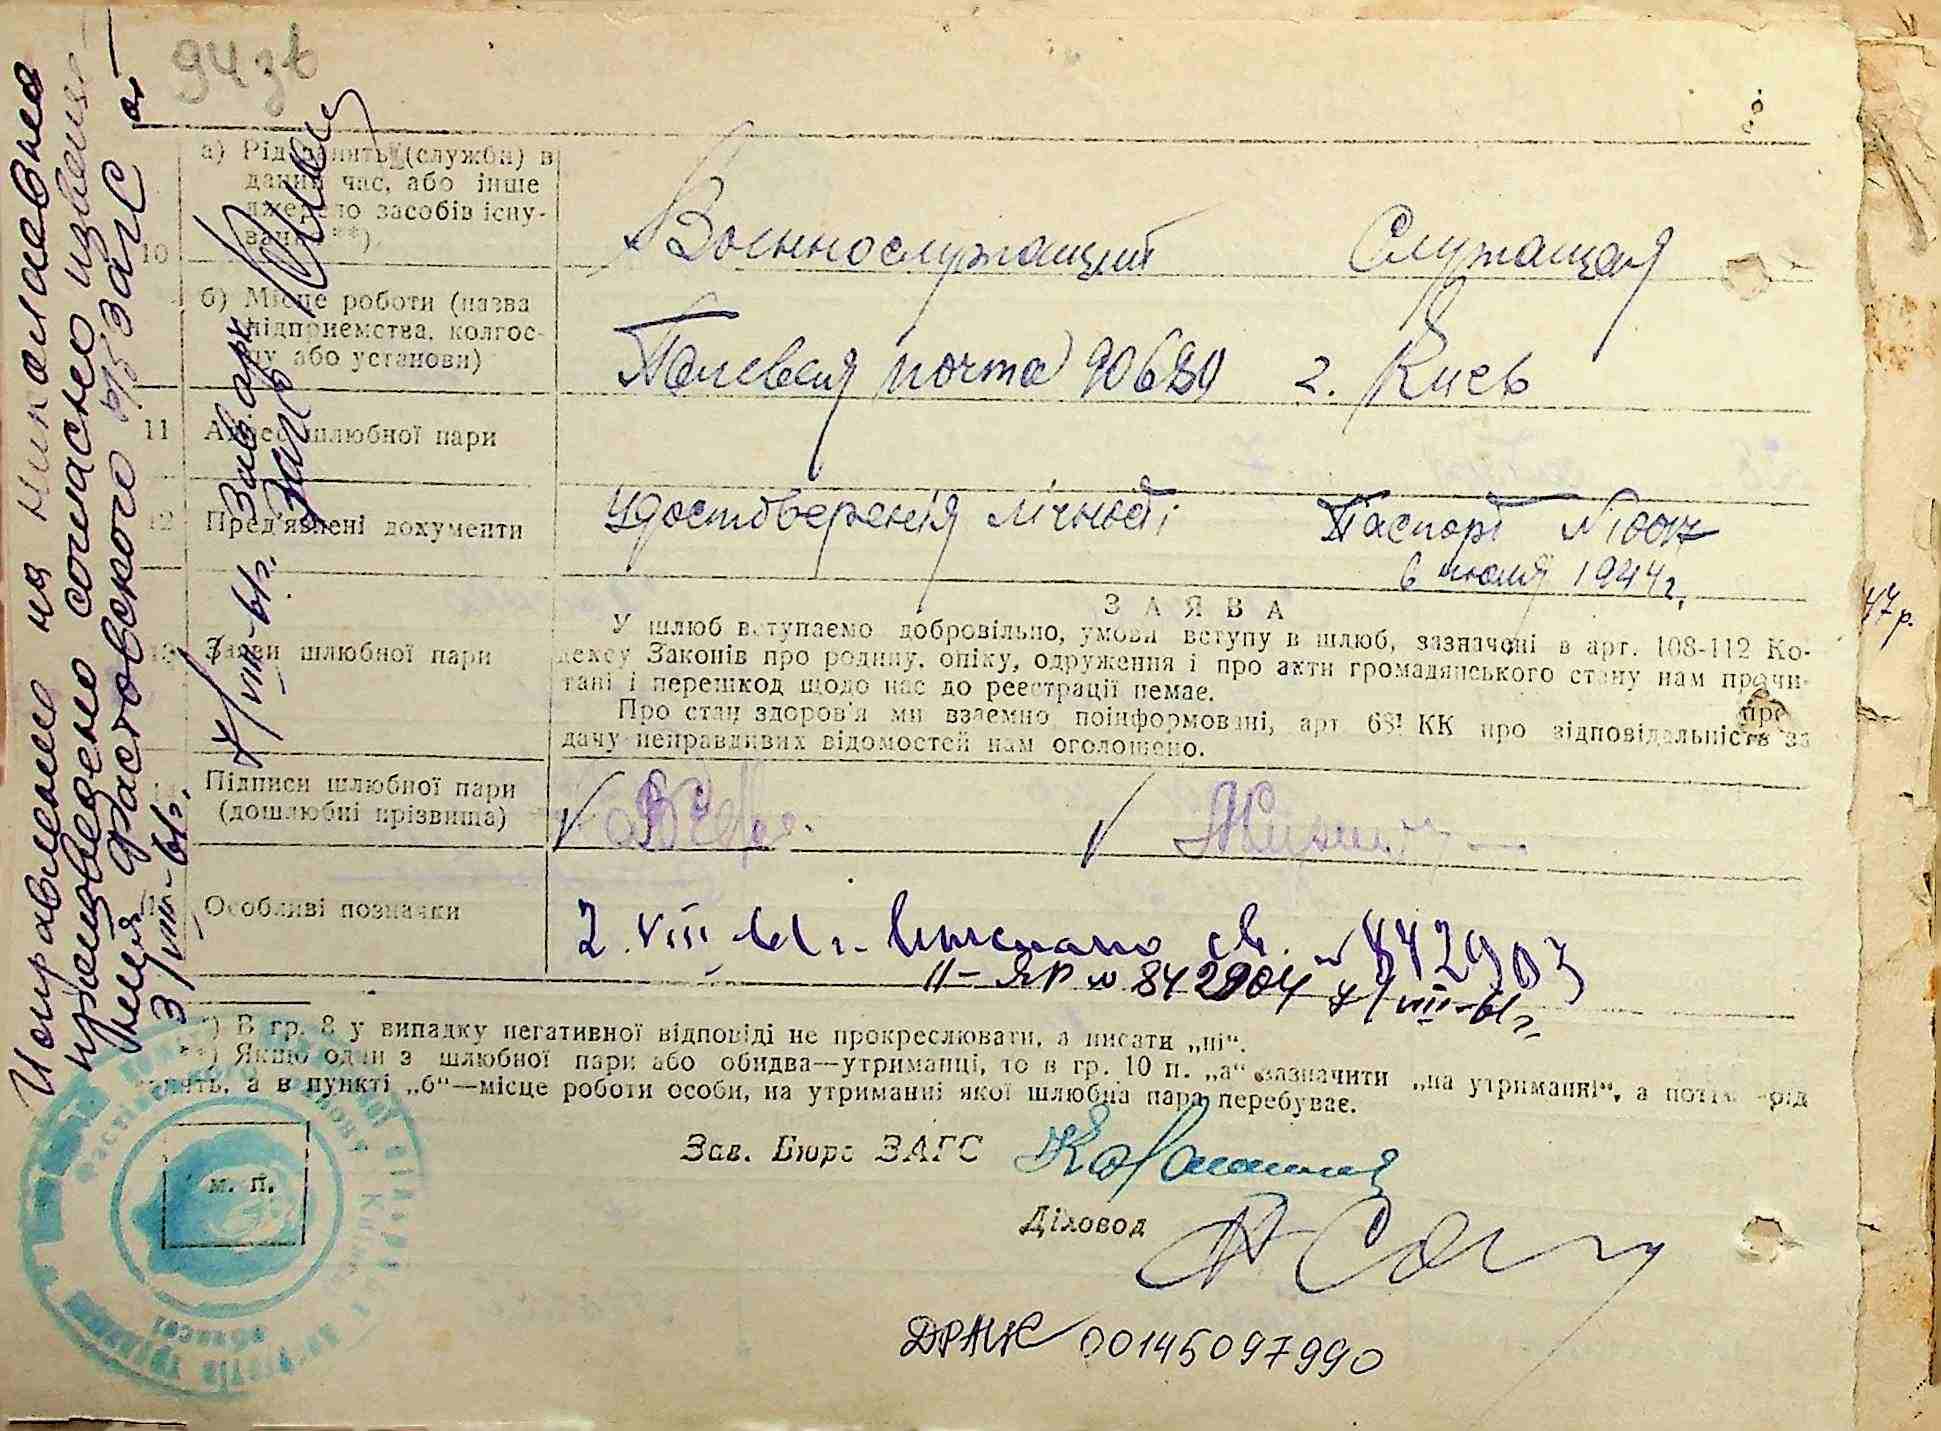 94зв
Исправлено на Николаевна
произведено согласно извеще-
ния Фастовского р/б ЗАГС от
3/VIII-61г.
Зав. арх.
ЗАГС
4/VIII-61г.
10
а) Рід занять (служби) в
даний час, або інше
джерело засобів існу-
вання **)
Военнослужащий Служащая
б) Місце роботи (назва
підприємства, колгос-
пу або установи)
Полевая почта 90684 г. Киев
11 Адрес шлюбної пари
12 Пред'явлені документи
Удостоверенія лічності Паспорт №
6 июля 1944г.
13 Заяви шлюбної пари
ЗАЯВА
У шлюб вступаємо добровільно, умови вступу в шлюб, зазначені в арт. 108-112 Ко-
дексу Законів про родину, опіку, одруження і про акти громадянського стану нам прочи-
тані і перешкод щодо нас до реєстрації немає.
Про стан здоров'я ми взаємно поінформовані, арт 68¹ КК про відповідальність за
дачу неправдивих відомостей нам оголошено.
14 Підписи шлюбної пари
(дошлюбні прізвища)
15 Особливі познаки
2.VIII-61г. Выписано св. № 842903
II-ЯР № 842904 4/VIII-61г.
*) В гр. 8 у випадку негативної відповіді не прокреслювати, а писати „ні“.
**) Якщо один з шлюбної пари або обидва—утриманці, то в гр. 10 п. „а“ зазначити „на утриманні“, а потім рід
занять, а в пункті „б“—місце роботи особи, на утриманні якої шлюбна пара перебуває.
Зав. Бюро ЗАГС
м. п.
Діловод
ДРАЦС 00145097990
47р.